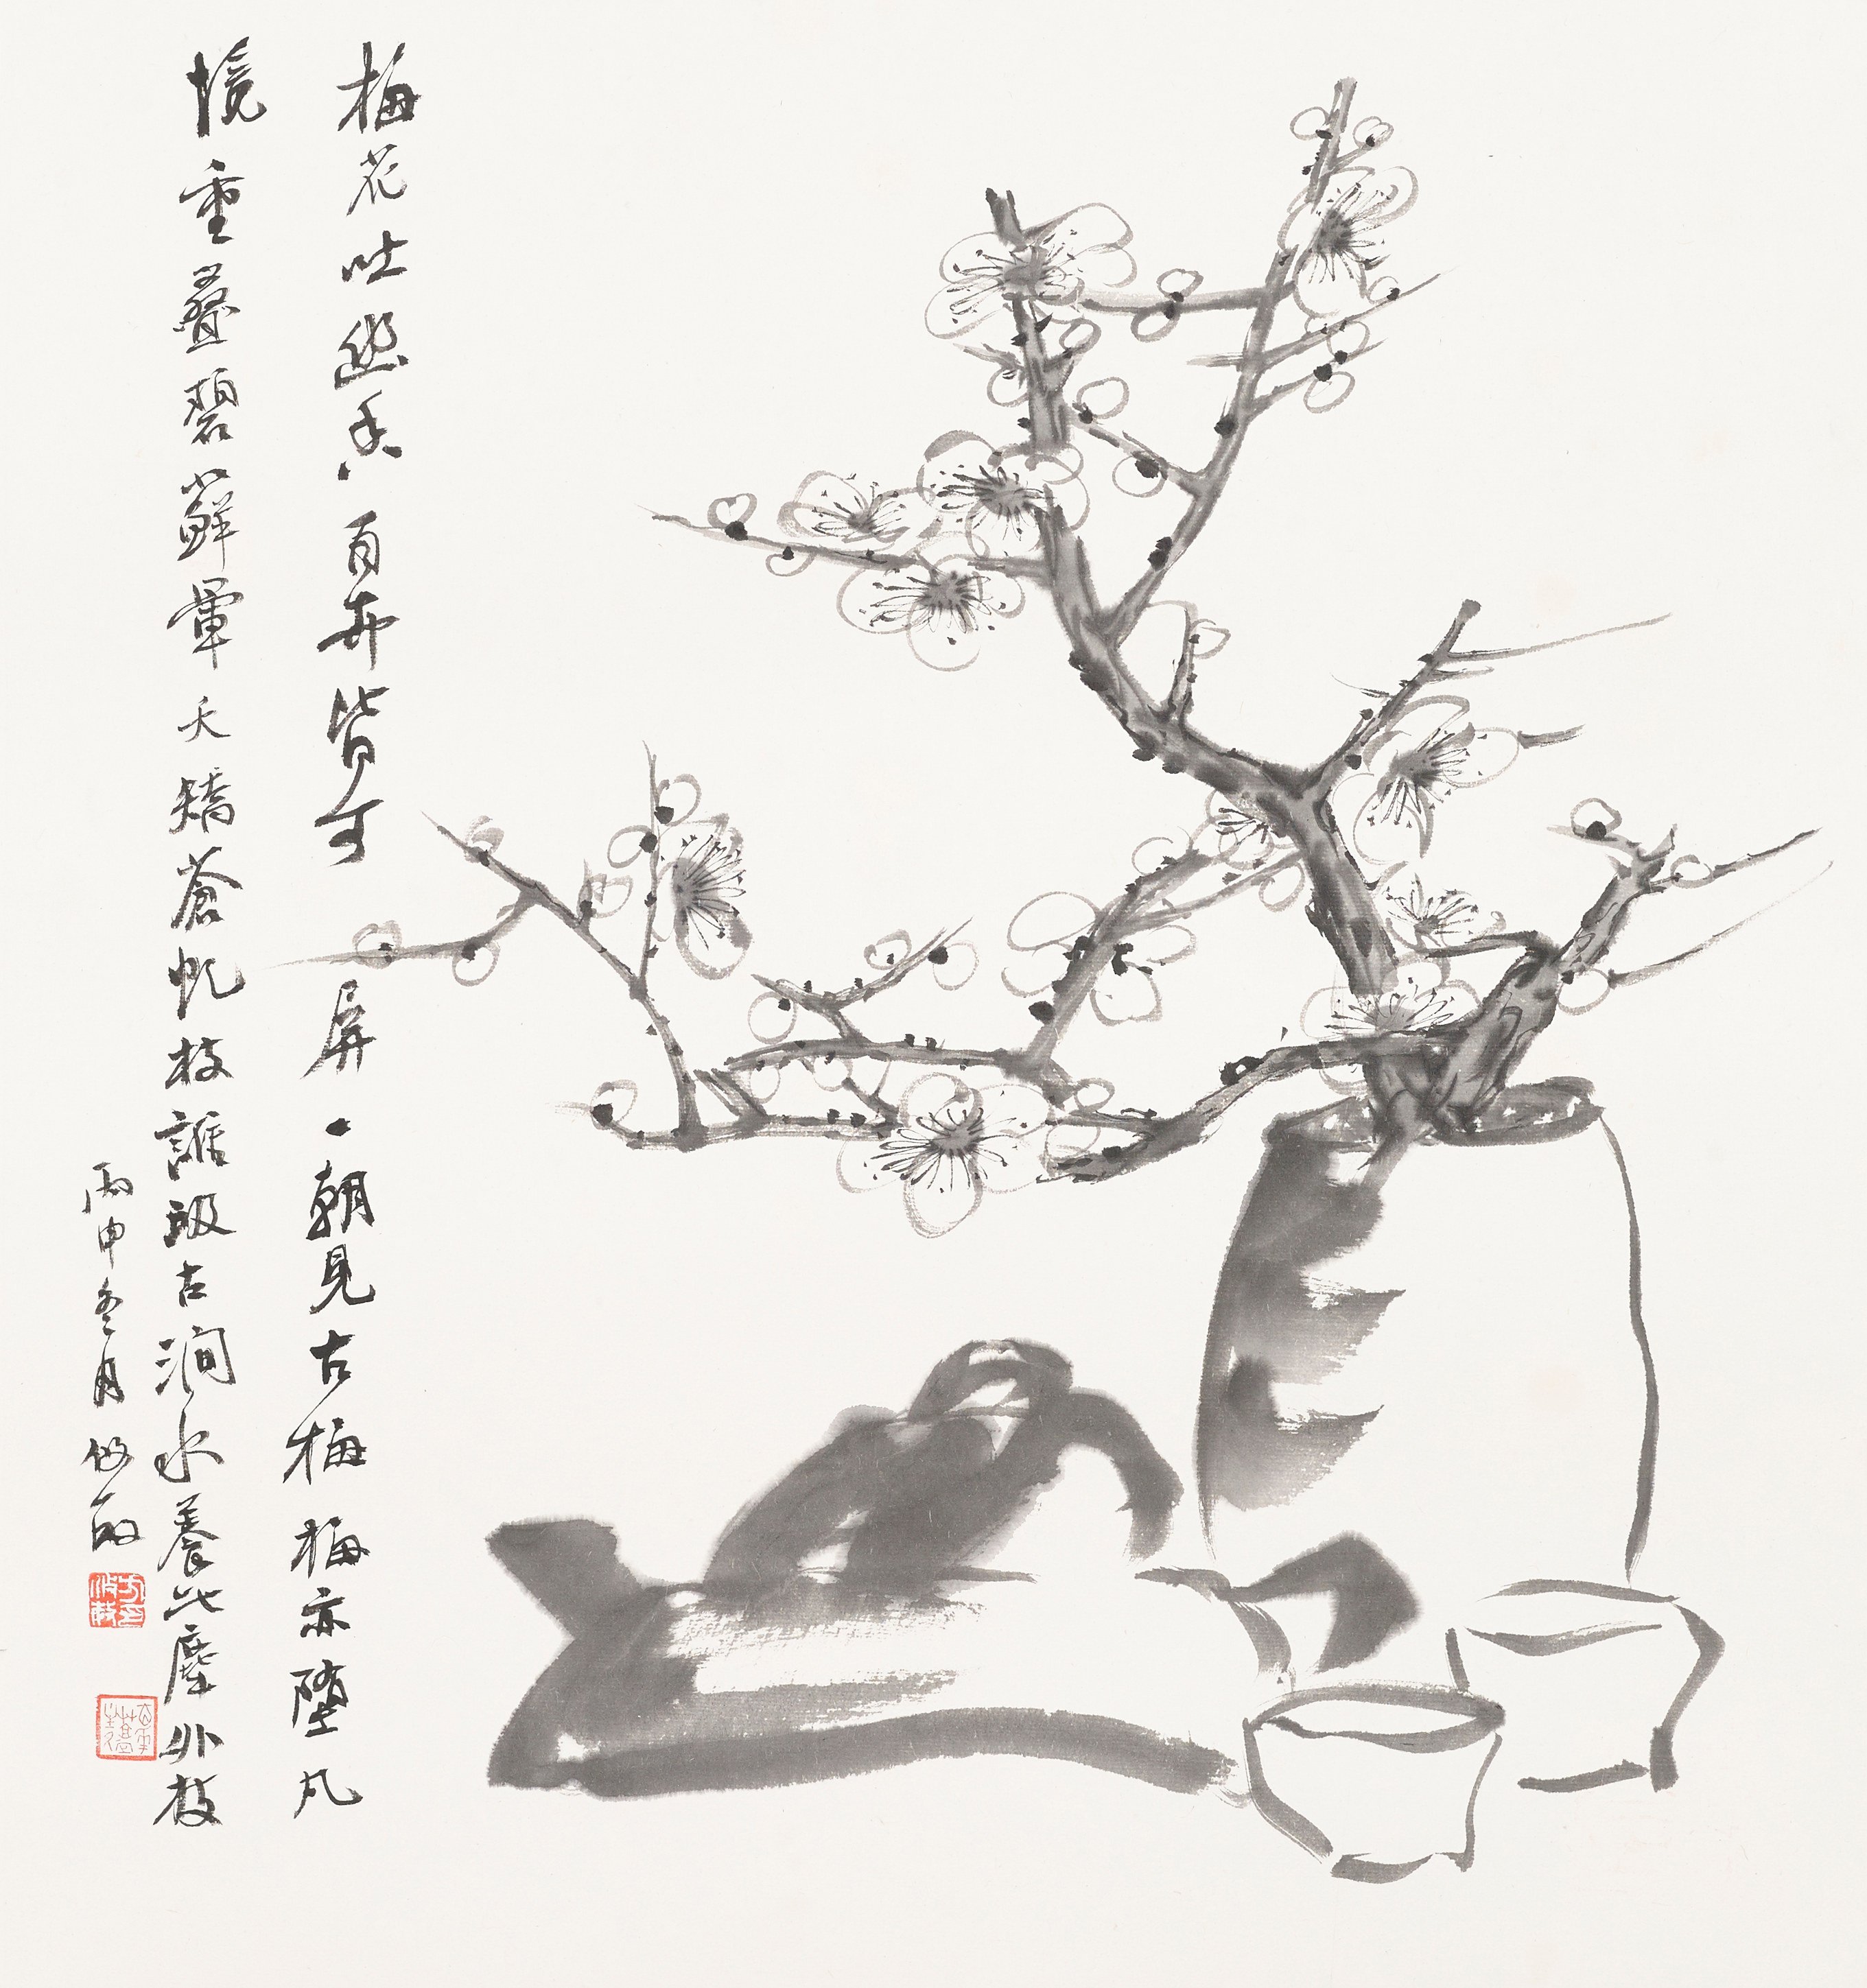 梅花吐幽香百卉皆可屏一朝見古梅梅亦墮凡
境重疊碧蘚暈夭矯蒼虯枝誰汲古澗水養此塵外枝
丙申冬月